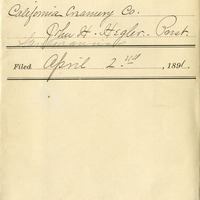 California Creamery Co.
John H. Hegler. Prest.
Filed April 2nd, 1891.